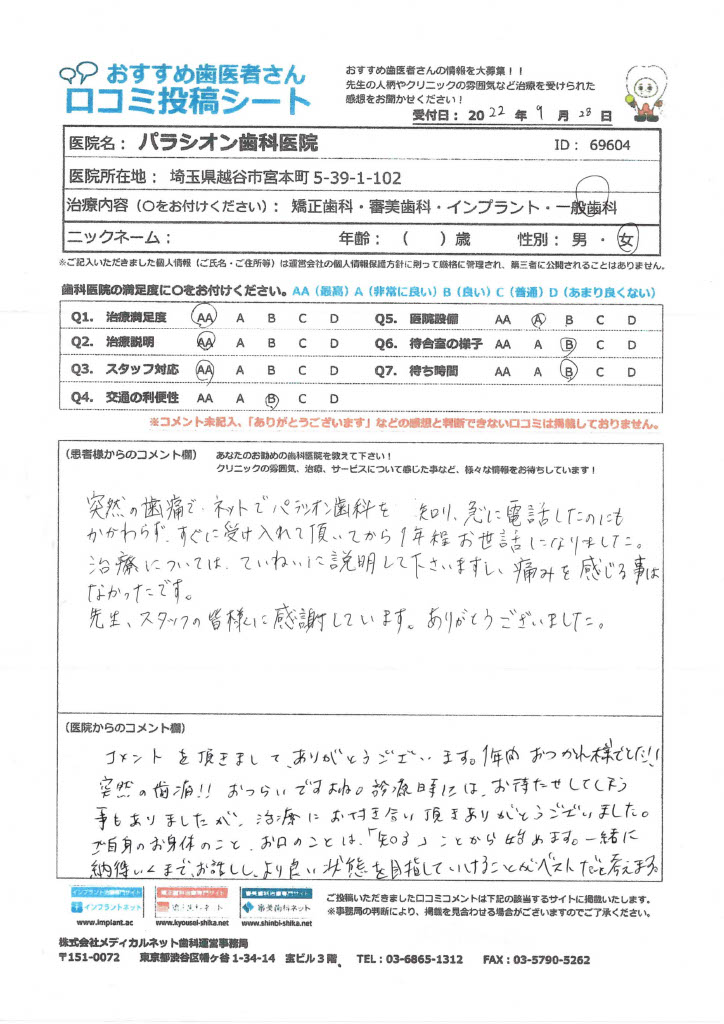 おすすめ歯医者さん
口コミ投稿シート
おすすめ歯医者さんの情報を大募集!!
先生の人柄やクリニックの雰囲気など治療を受けられた
感想をお聞かせください!
受付日: 2022 年 9 月 28 日
医院名: パラシオン歯科医院 ID: 69604
医院所在地: 埼玉県越谷市宮本町 5-39-1-102
治療内容(〇をお付けください): 矯正歯科・審美歯科・インプラント・一般歯科
ニックネーム: 年齢: ( )歳 性別: 男 ・ 女
※ご記入いただきました個人情報(ご氏名・ご住所等)は運営会社の個人情報保護方針に則って厳格に管理され、第三者に公開されることはありません。
歯科医院の満足度に〇をお付けください。AA(最高)A(非常に良い)B(良い)C(普通)D(あまり良くない)
Q1. 治療満足度 AA A B C D Q5. 医院設備 AA A B C D
Q2. 治療説明 AA A B C D Q6. 待合室の様子 AA A B C D
Q3. スタッフ対応 AA A B C D Q7. 待ち時間 AA A B C D
Q4. 交通の利便性 AA A B C D
※コメント未記入、「ありがとうございます」などの感想と判断できない口コミは掲載しておりません。
(患者様からのコメント欄) あなたのお勧めの歯科医院を教えて下さい!
クリニックの雰囲気、治療、サービスについて感じた事など、様々な情報をお待ちしています!
突然の歯痛で、ネットでパラシオン歯科を 知り、急に電話したのにも
かかわらず、すぐに受け入れて頂いてから1年程お世話になりました。
治療については、ていねいに説明して下さいますし、痛みを感じる事は
なかったです。
先生、スタッフの皆様に感謝しています。ありがとうございました。
(医院からのコメント欄)
コメントを頂きまして、ありがとうございます。1年間おつかれ様でした!!
突然の歯痛!! おつらいですよね。診療時には、お待たせしてしまう
事もありましたが、治療にお付き合い頂きありがとうございました。
ご自身のお身体のこと、お口のことは、「知る」ことから始めます。一緒に
納得いくまで、お話しし、より良い状態を目指していけることがベストだと考えます。
インプラント治療専門サイト 矯正歯科治療専門サイト 審美歯科治療専門サイト
インプラントネット 矯正歯科ネット 審美歯科ネット
www.implant.ac www.kyousei-shika.net www.shinbi-shika.net
ご投稿いただきました口コミコメントは下記の該当するサイトに掲載いたします。
※事務局の判断により、掲載を見合わせる場合がございますのでご了承ください。
株式会社メディカルネット歯科運営事務局
〒151-0072 東京都渋谷区幡ヶ谷 1-34-14 宝ビル3階、 TEL:03-6865-1312 FAX:03-5790-5262